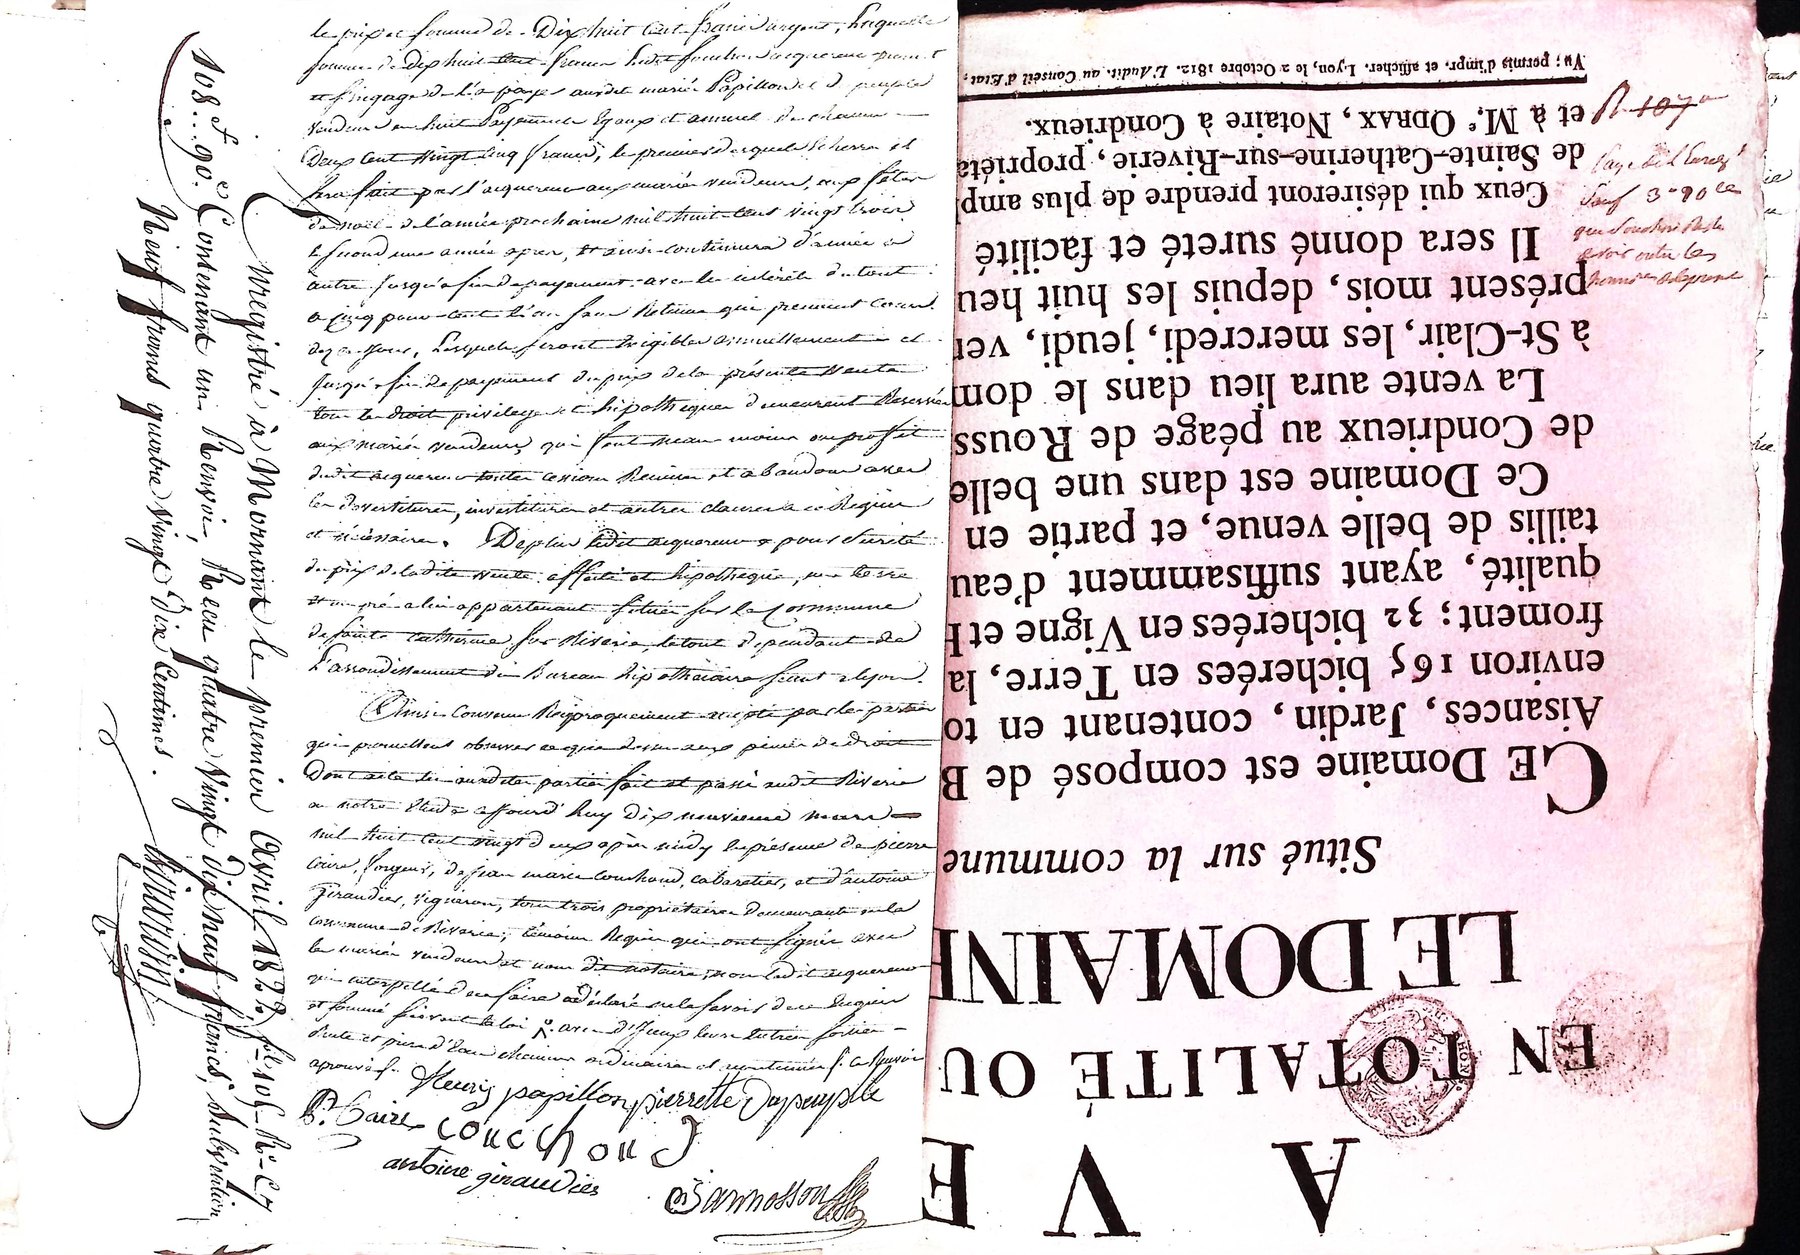 le prix et somme de Dix huit Cent francs argent, Laquelle
somme de dix huit Cent francs ledit acquereur promet
et s'engage de la payer auxdits mariés Papillon et d
vendeurs en huit Payements Egaux et annuel de chacun
Deux Cent vingt cinq francs, le premier desquels Echerra et
sera fait par l'acquereur aux mariés vendeurs, aux fêtes
de noël de l'année prochaine mil huit cent vingt trois
le second une année après, et ainsi continuera d'année à
autre jusqu'à fin de payement avec les intérêts du tout
a Cinq pour cent l'an sans Retenue qui prennent cours
dez ce jour, Lesquels seront Exigibles annuellement et
jusqu'a fin de payement du prix de la présente vente
tous les droits privilege et hipotheques demeurent Reservés
aux mariés vendeurs, qui font neanmoins au profit
dudit acquereur toutes cessions Remises et abandons avec
les devestitures, investitures et autres clauses a ce Requises
et nécéssaires. Deplus ledit acquereur pour sureté
du prix de ladite vente affecte et hipotheque, une terre
et un pré a lui appartenant situés sur la Commune
de sainte catherine sur Riverie, le tout dependant de
l'arrondissement du Bureau hipothécaire séant a lyon.
Ainsi Convenu Réciproquement accepté par les parties
qui promettent observer ce que dessus aux peines de droit
Dont acte lu auxdites parties fait et passé audit Riverie
en notre Etude cejourd'huy dix neuvieme mars
mil huit cent vingt deux après midy En présence de pierre
Caire, de jean marie Couchoud, cabaretier, et d'antoine
Giraudier, vigneron, tous trois propriétaires demeurants sur la
commune de Riverie, témoins Requis qui ont signés avec
les mariés vendeurs et nous dit notaire, non ledit acquereur
qui interpellé de ce faire a déclaré ne le savoir de ce Enquis
et sommé suivant la loi
fleury papillon pierrette Dupeuple
P. Caire couchoud
antoine giraudier
Bannosson
Enregistré à Mornant le premier Avril 1822, f.° 105 R.° C.7
108. et 90.e Contenant un Renvoi, Reçu quatre Vingt dix neuf francs, Subvention
Neuf francs quatre Vingt Dix Centimes.
A VE
EN TOTALITÉ OU
LE DOMAINE
Situé sur la commune
CE Domaine est composé de B
Aisances, Jardin, contenant en to
environ 165 bicherées en Terre, la
froment; 32 bicherées en Vigne et
qualité, ayant suffisamment d'eau
taillis de belle venue, et partie en
Ce Domaine est dans une belle
de Condrieux au péage de Rouss
La vente aura lieu dans le dom
à St-Clair, les mercredi, jeudi, ven
présent mois, depuis les huit heu
Il sera donné sureté et facilité
Ceux qui désireront prendre de plus amp
de Sainte-Catherine-sur-Riverie, propriéta
et à M.e ODRAX, Notaire à Condrieux.
Vu; permis d'impr. et afficher. Lyon, le 2 Octobre 1812. L'Audit. au Conseil d'Etat,
R. 107